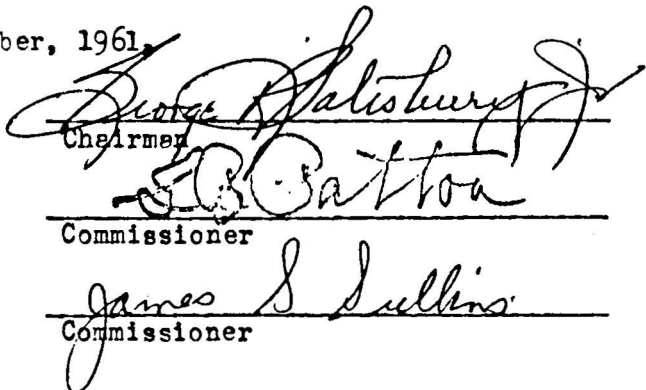 ber, 1961.
George R Salisbury Jr
Chairman
Patton
Commissioner
James S Sullins
Commissioner